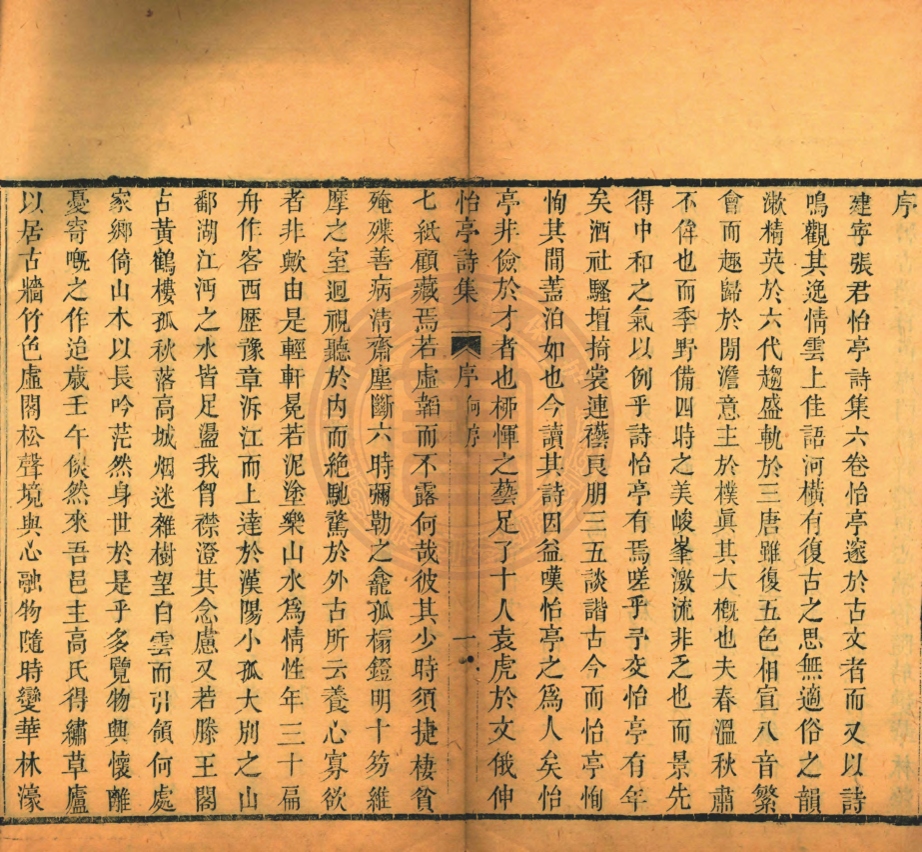 序
建寧張君怡亭詩集六卷怡亭邃於古文者而又以詩
鳴觀其逸情雲上佳語河橫有復古之思無適俗之韻
漱精英於六代趨盛軌於三唐雖復五色相宣八音繁
會而趣歸於閒澹意主於樸眞其大槪也夫春溫秋肅
不侔也而季野備四時之美峻峯激流非乏也而景先
得中和之氣以例乎詩怡亭有焉嗟乎予交怡亭有年
矣酒社騷壇掎裳連襼良朋三五談諧古今而怡亭恂
恂其間葢泊如也今讀其詩因益嘆怡亭之爲人矣怡
亭非儉於才者也桺惲之藝足了十人袁虎於文俄伸
怡亭詩集 序 一
七紙顧藏焉若虛韜而不露何哉彼其少時須捷棲貧
殗殜善病淸齋塵斷六時彌勒之龕孤榻鐙明十笏維
摩之室迴視聽於内而絶馳騖於外古所云養心寡欲
者非歟由是輕軒冕若泥塗樂山水爲情性年三十扁
舟作客西歷豫章泝江而上達於漢陽小孤大别之山
鄱湖江沔之水皆足盪我胷襟澄其念慮又若滕王閣
占黃鶴樓孤秋落高城烟迷雜樹望白雲而引領何處
家鄉倚山木以長吟茫然身世於是乎多覽物興懷離
憂寄嘅之作迨歲壬午儵然來吾邑主高氏得繡草廬
以居古牆竹色虛閣松聲境與心融物隨時變華林濠